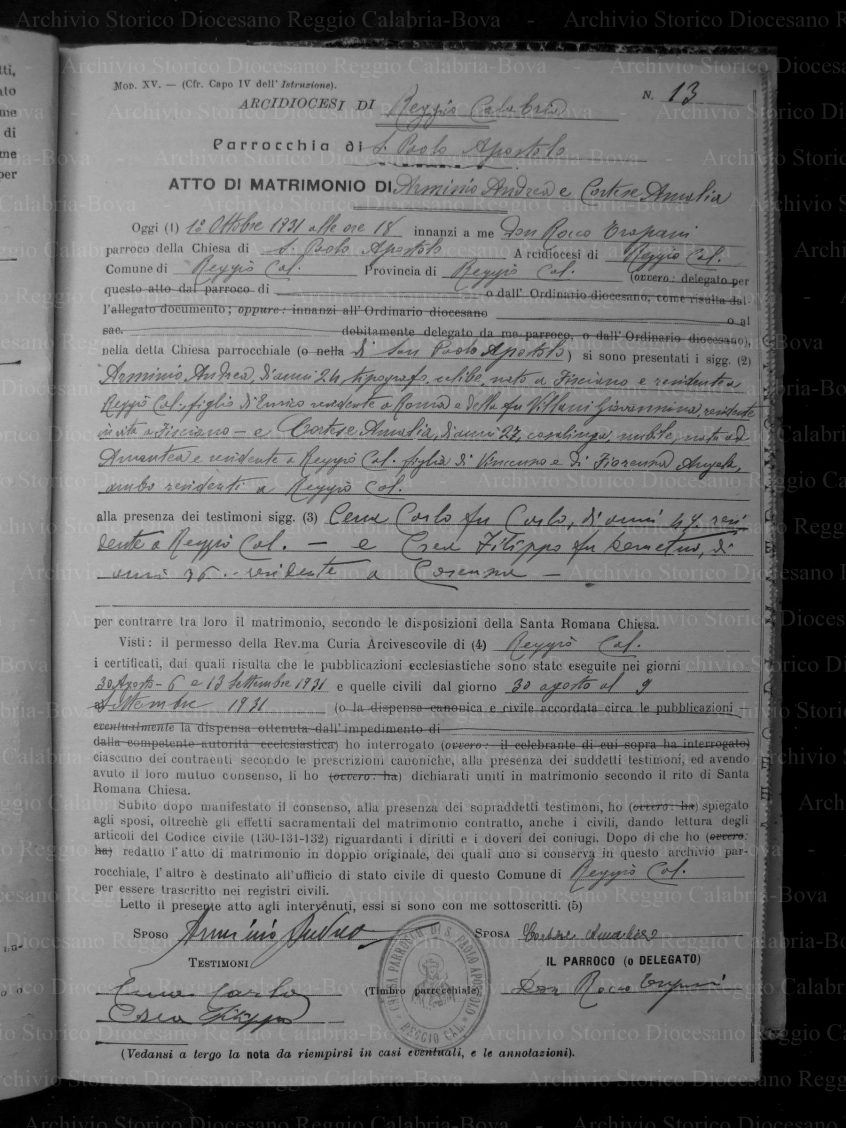 Archivio Storico Diocesano Reggio Calabria-Bova - Archivio Storico Diocesano Reggio Calabria-Bova
Mod. XV. — (Cfr. Capo IV dell' Istruzione).
N. 13
ARCIDIOCESI DI Reggio Calabria
Parrocchia di S. Paolo Apostolo
ATTO DI MATRIMONIO DI Arminio Andrea e Cortese Amalia
Oggi (1) 1° Ottobre 1931 alle ore 18 innanzi a me Don Rocco Trapani
parroco della Chiesa di S. Paolo Apostolo Arcidiocesi di Reggio Cal.
Comune di Reggio Cal. Provincia di Reggio Cal. (ovvero: delegato per
questo atto dal parroco di o dall' Ordinario diocesano, come risulta dal
l'allegato documento; oppure: innanzi all' Ordinario diocesano o al
sac. debitamente delegato da me parroco, o dall' Ordinario diocesano),
nella detta Chiesa parrocchiale (o nella di San Paolo Apostolo) si sono presentati i sigg. (2)
Arminio Andrea, di anni 24, tipografo, celibe, nato a Fisciano e residente a
Reggio Cal. figlio di Enrico residente a Roma e della fu Villani Giovannina, residente
in vita a Fisciano — e Cortese Amalia, di anni 27, casalinga, nubile, nata ad
Amantea e residente a Reggio Cal. figlia di Vincenzo e di Fiorenza Angela,
ambo residenti a Reggio Cal.
alla presenza dei testimoni sigg. (3) Carlo fu Carlo, di anni resi
dente a Reggio Cal. — e Crea Filippo fu Demetrio, di
anni 36 — residente a Cosenza —
per contrarre tra loro il matrimonio, secondo le disposizioni della Santa Romana Chiesa.
Visti: il permesso della Rev.ma Curia Arcivescovile di (4) Reggio Cal.
i certificati, dai quali risulta che le pubblicazioni ecclesiastiche sono state eseguite nei giorni
30 Agosto - 6 e 13 Settembre 1931 e quelle civili dal giorno 30 agosto al 9
Settembre 1931 (o la dispensa canonica e civile accordata circa le pubblicazioni —
eventualmente la dispensa ottenuta dall'impedimento di
dalla competente autorità ecclesiastica) ho interrogato (ovvero: il celebrante di cui sopra ha interrogato)
ciascuno dei contraenti secondo le prescrizioni canoniche, alla presenza dei suddetti testimoni, ed avendo
avuto il loro mutuo consenso, li ho (ovvero: ha) dichiarati uniti in matrimonio secondo il rito di Santa
Romana Chiesa.
Subito dopo manifestato il consenso, alla presenza dei sopraddetti testimoni, ho (ovvero: ha) spiegato
agli sposi, oltrechè gli effetti sacramentali del matrimonio contratto, anche i civili, dando lettura degli
articoli del Codice civile (130-131-132) riguardanti i diritti e i doveri dei conjugi. Dopo di che ho (ovvero:
ha) redatto l'atto di matrimonio in doppio originale, dei quali uno si conserva in questo archivio par-
rocchiale, l'altro è destinato all'ufficio di stato civile di questo Comune di Reggio Cal.
per essere trascritto nei registri civili.
Letto il presente atto agli intervenuti, essi si sono con me sottoscritti. (5)
SPOSO Arminio Andrea SPOSA Cortese Amalia
TESTIMONI IL PARROCO (o DELEGATO)
(Timbro parrocchiale) Don Rocco Trapani
Carlo
Crea Filippo
CHIESA PARROCCHIALE DI S. PAOLO APOSTOLO
REGGIO CAL.
(Vedansi a tergo la nota da riempirsi in casi eventuali, e le annotazioni).